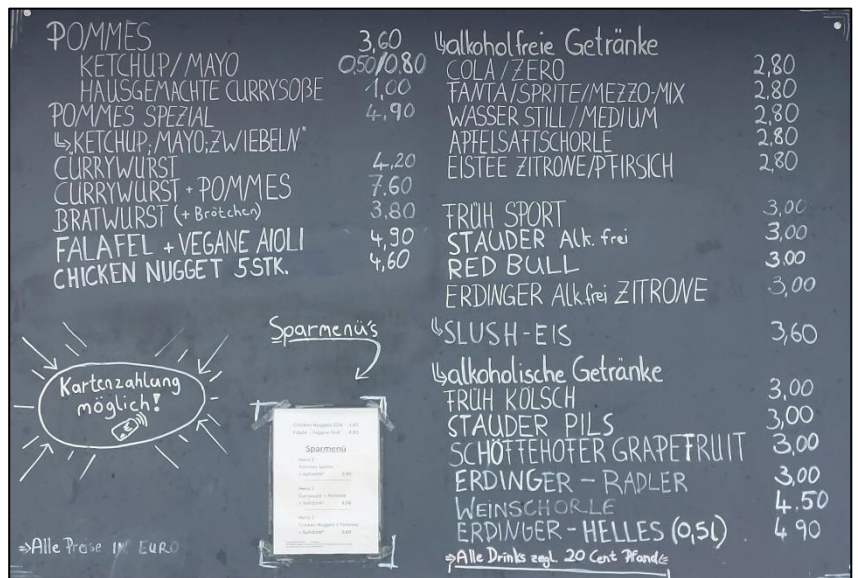 POMMES 3,60
KETCHUP/MAYO 0,50/0,80
HAUSGEMACHTE CURRYSOßE 1,00
POMMES SPEZIAL 4,90
↳„KETCHUP;MAYO;ZWIEBELN"
CURRYWURST 4,20
CURRYWURST + POMMES 7.60
BRATWURST (+ Brötchen) 3.80
FALAFEL + VEGANE AIOLI 4,90
CHICKEN NUGGET 5STK. 4,60
Sparmenü's
Kartenzahlung
möglich!
Chicken Nuggets
Sparmenü
Menü 1
Pommes Spezial
Menü 2
Currywurst + Pommes
Menü 3
Chicken Nuggets + Pommes
⇒Alle Preise IN EURO
↳alkoholfreie Getränke
COLA/ZERO 2,80
FANTA/SPRITE/MEZZO-MIX 2,80
WASSER STILL/MEDIUM 2,80
APFELSAFTSCHORLE 2,80
EISTEE ZITRONE/PFIRSICH 2,80
FRÜH SPORT 3,00
STAUDER Alk. frei 3,00
RED BULL 3,00
ERDINGER Alk.frei ZITRONE 3,00
↳SLUSH-EIS 3,60
↳alkoholische Getränke
FRÜH KÖLSCH 3,00
STAUDER PILS 3,00
SCHÖFFEHOFER GRAPEFRUIT 3,00
ERDINGER – RADLER 3,00
WEINSCHORLE 4.50
ERDINGER – HELLES (0,5L) 4 90
⇒Alle Drinks zzgl. 20 Cent Pfand⇐